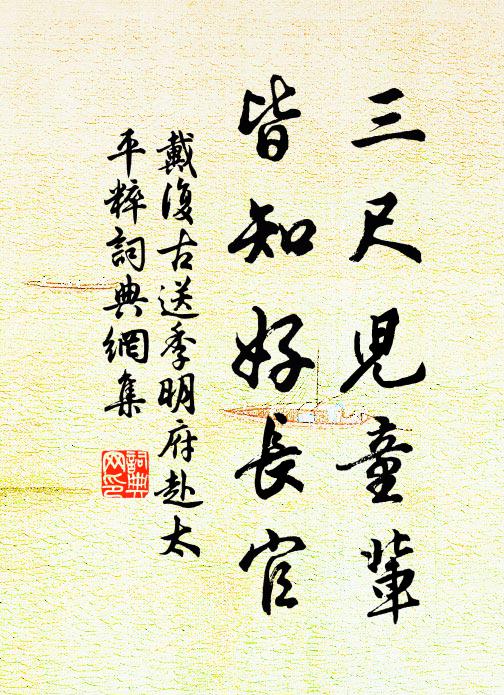 三尺兒童輩
皆知好長官
戴復古送季明府赴太
平粹詞典網集
詞典
网印